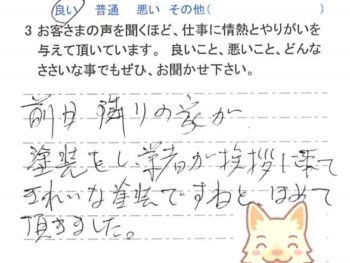 良い 普通 悪い その他( )
3 お客さまの声を聞くほど、仕事に情熱とやりがいを
与えて頂いています。 良いこと、悪いこと、どんな
ささいな事でもぜひ、お聞かせ下さい。
前日 隣りの家が
塗装をし業者が挨拶に来て
きれいな塗装ですねと、ほめて
頂きました。